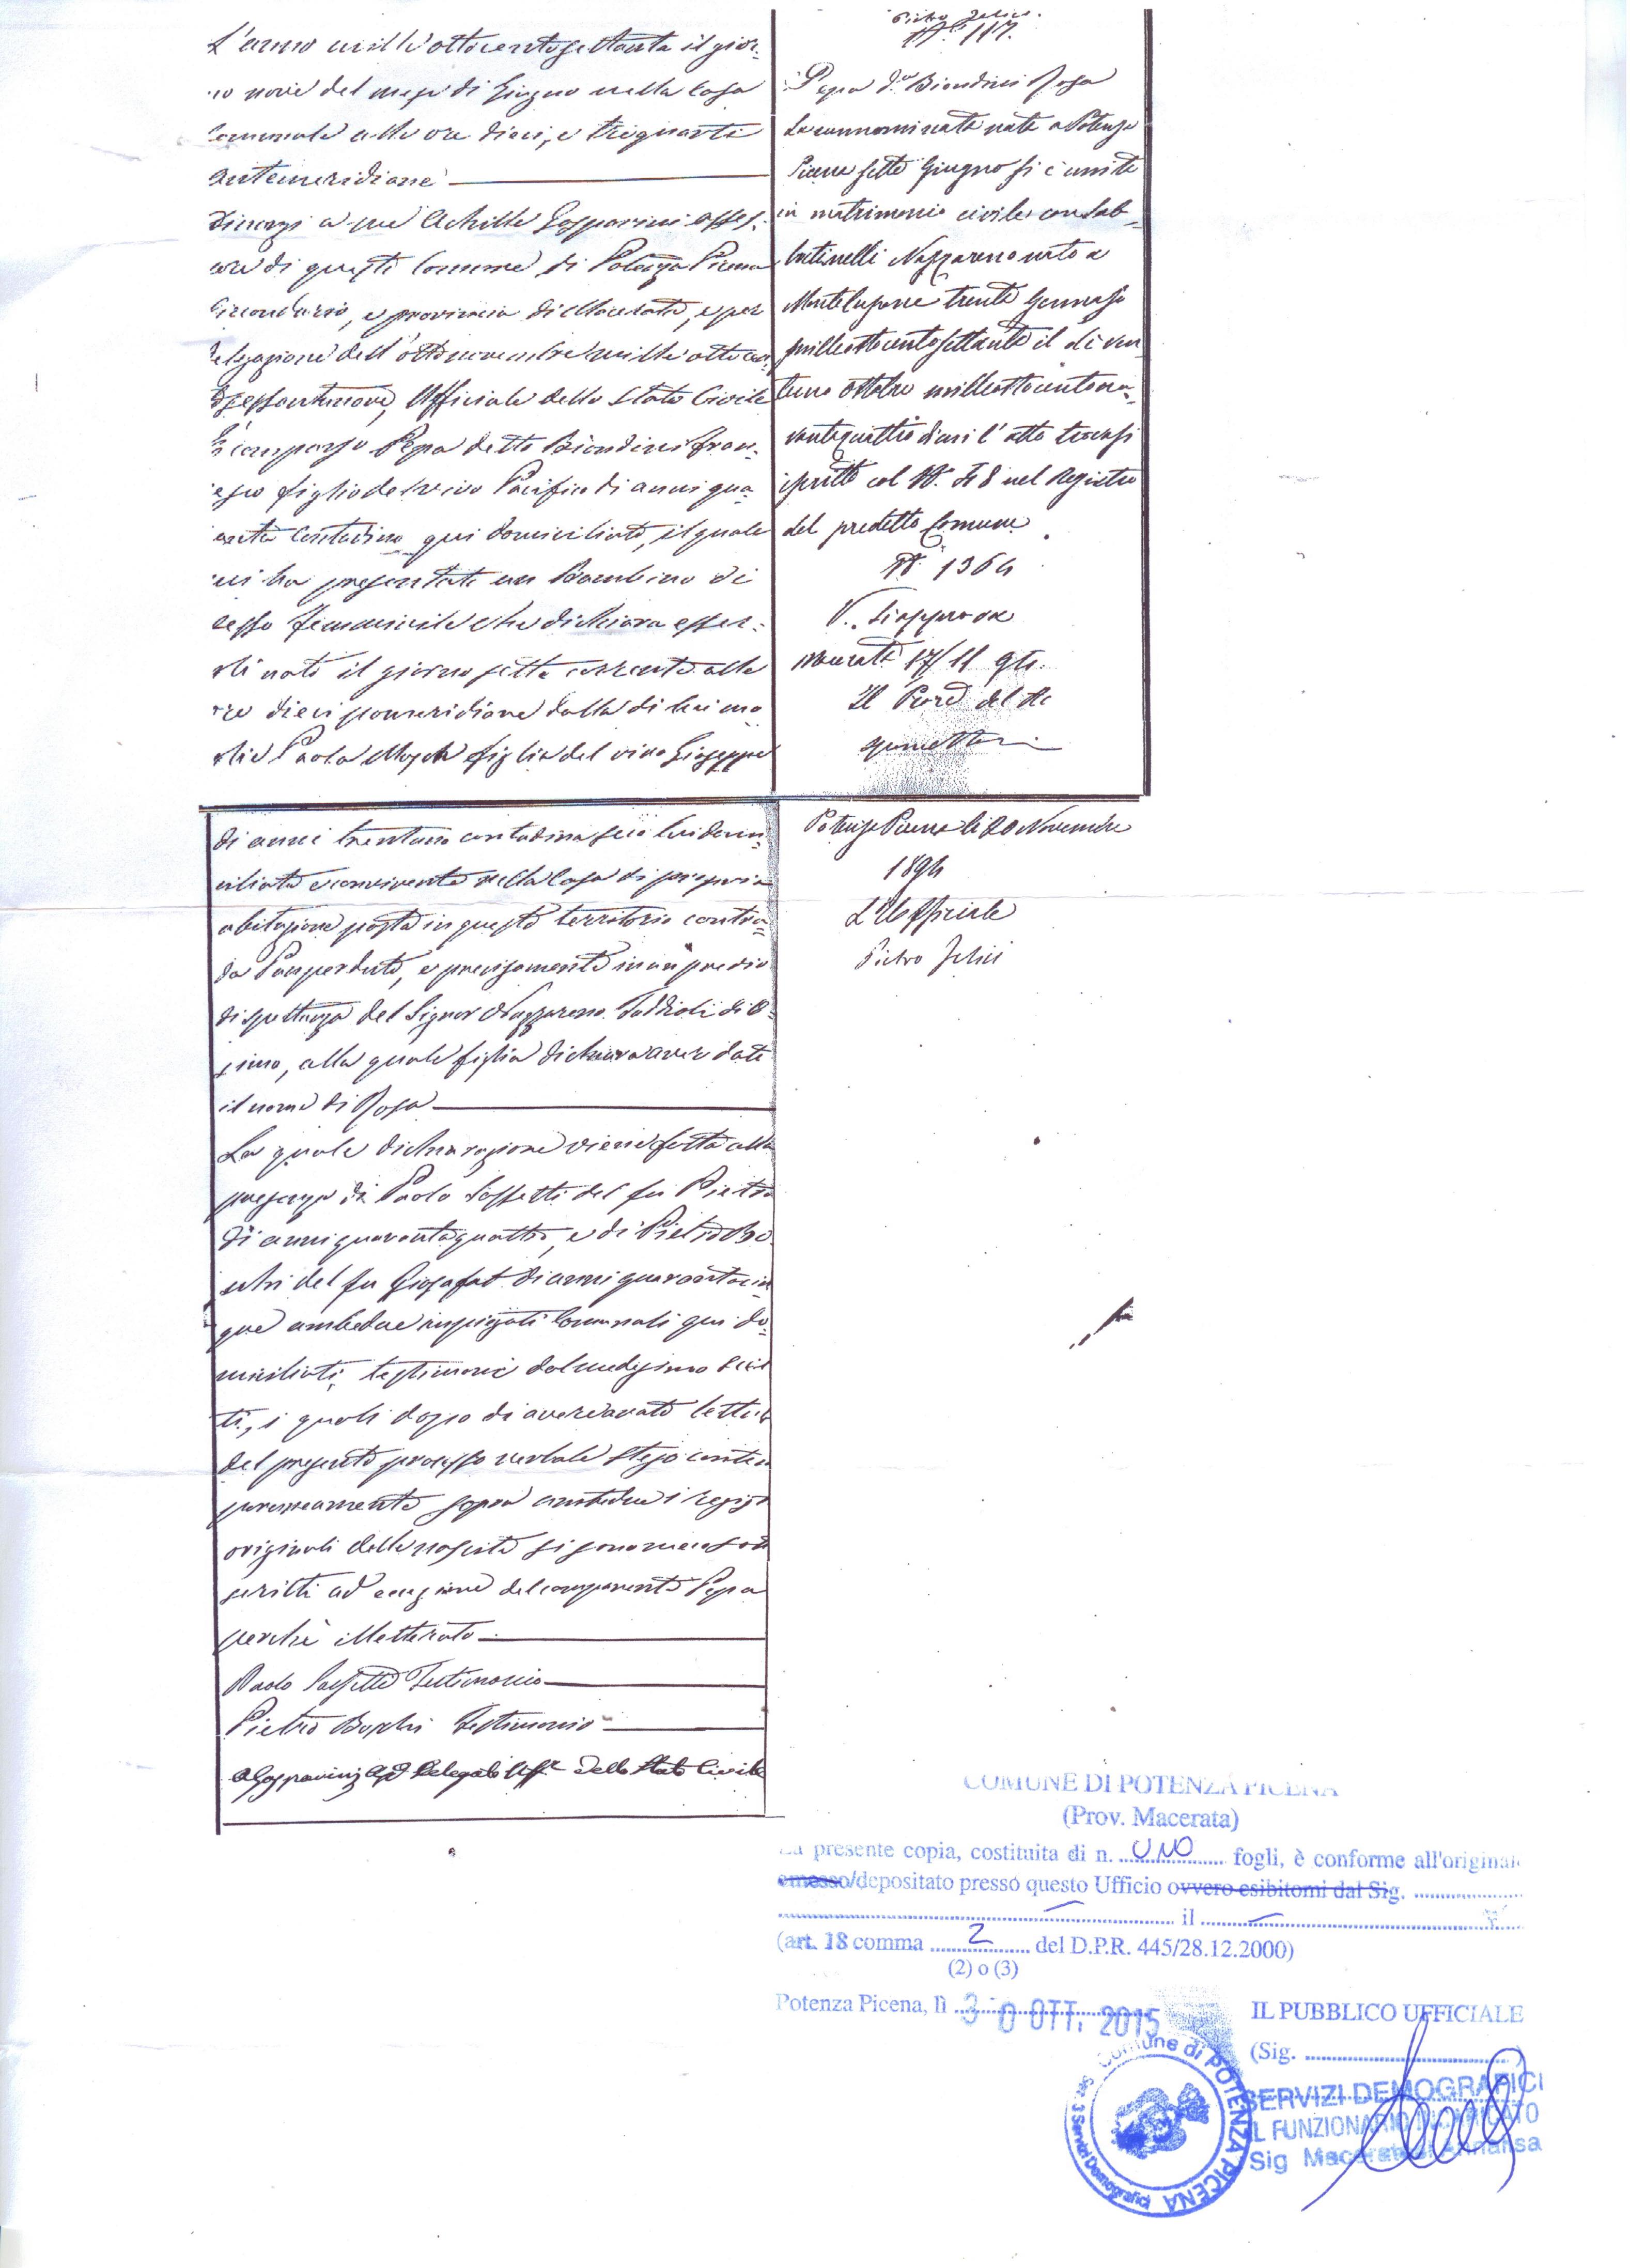 L'anno mill'ottocentosettanta il gior=
no nove del mese di Giugno nella Casa
Comunale alle ore dieci, e trequarti
antemeridiane
Dinanzi a me Achille Gasparrini asses=
sore di questo Comune di Potenza Picena
Circondario, e provincia di Macerata, e per
delegazione dell'otto novembre mille otto cen=
tosessantanove, Ufficiale dello Stato Civile
È comparso Pepa detto Biondini Fran=
cesco figlio del vivo Pacifico di anni qua=
ranta Contadino qui domiciliato, il quale
mi ha presentato un Bambino di
sesso femminile che dichiara esser=
gli nato il giorno sette corrente alle
ore dieci pomeridiane dalla di lui mo
glie Paola figlia del vivo Giuseppe
di anni trentuno contadina seco lui domi=
ciliata e convivente nella Casa di propria
abitazione posta in questo territorio contra=
da Pamperduto, e precisamente in un predio
di spettanza del Signor Nazzareno di O=
simo, alla quale figlia dichiara aver dato
il nome di Rosa
La quale dichiarazione viene fatta alla
presenza di Paolo del fu Pietro
di anni quarantaquattro, e di Pietro Bo
schi del fu Giosafat di anni quarantacin
que ambedue impiegati Comunali qui do=
miciliati, testimoni dal medesimo scel
ti, i quali dopo di aver avuto lettura
del presente processo verbale steso contem
poraneamente sopra ambedue i registri
originali delle nascite si sono meco sotto
scritti ad eccezione del comparente Pepa
perchè illetterato
Paolo Testimonio
Pietro Boschi Testimonio
AGasparrini Delegato Uff.e dello Stato Civile
Pietro Felici
N.° 117.
Pepa d.a Biondini Rosa
La connominata nata a Potenza
Picena sette Giugno si è unita
in matrimonio civile con Sab=
batinelli Nazzareno nato a
Montelupone trenta Gennajo
milleottocentosettanta il dì ven
tuno ottobre milleottocentono=
vantaquattro l'atto trovasi
iscritto col N. 58 nel Registro
del predetto Comune
N° 1364
V. Si approva
Macerata 17/11 94.
Il Proc del Re
Potenza Picena li 20 Novembre
1894
L'Ufficiale
Pietro Felici
COMUNE DI POTENZA PICENA
(Prov. Macerata)
La presente copia, costituita di n. UNO fogli, è conforme all'originale
emesso/depositato presso questo Ufficio ovvero esibitomi dal Sig. ....................
.................... il ....................
(art. 18 comma 2 del D.P.R. 445/28.12.2000)
(2) o (3)
Potenza Picena, lì 30 OTT. 2015
IL PUBBLICO UFFICIALE
(Sig. ....................)
SERVIZI DEMOGRAFICI
IL FUNZIONARIO INCARICATO
Sig
Comune di POTENZA PICENA
Servizi Demografici